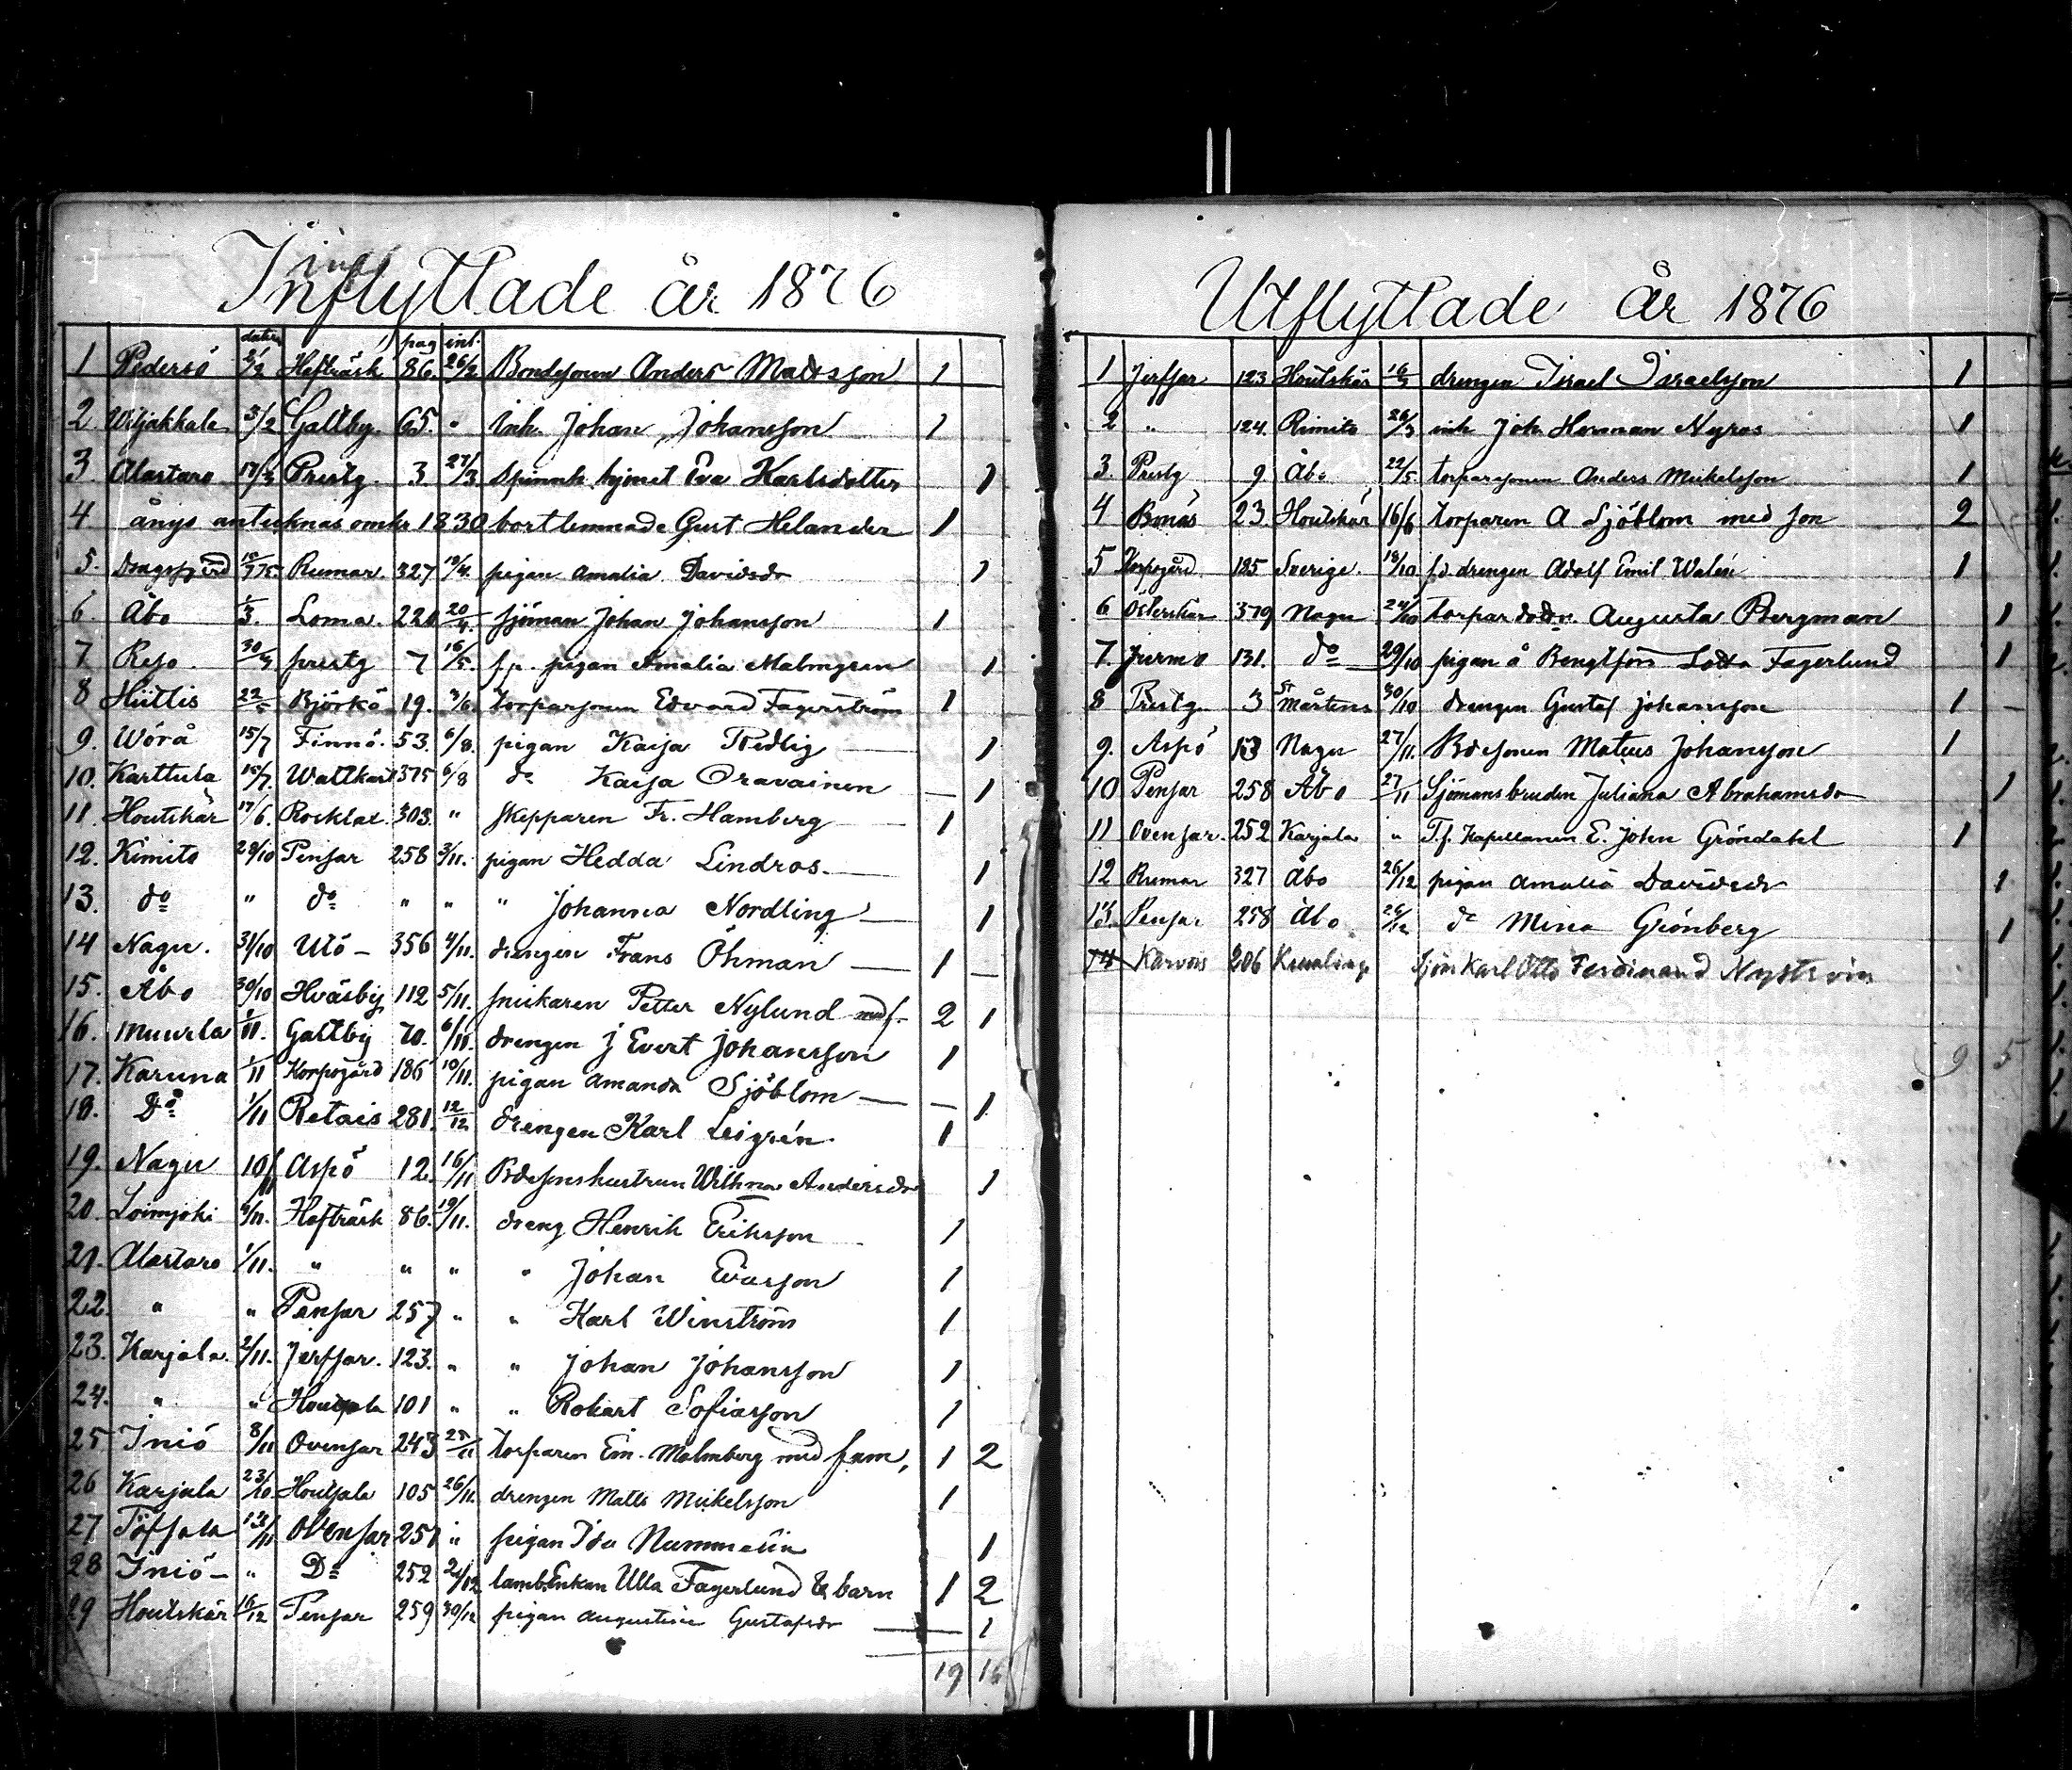 Inflyttade år 1876
datum pag inl.
1 Pedersö 2/2 Hefträsk 86. 26/2 Bondesonen Anders Matsson 1
2 Wiljakkala 3/2 Galtby 65. " Inh. Johan Johansson 1
3 Alastaro 17/3 Prestg. 3 27/3 Eva Karlsdotter 1
4 ånyo antecknas omkr 1830 bortlemnade Gust Helander 1
5. Dragsfjerd Rumar. 327 19/4. pigan Amalia Davidsdr 1
6. Åbo 1/3. Loma. 220 20/4. sjöman Johan Johansson 1
7 Reso. 30/3 prestg 7 16/5. pigan Amalia Malmgren 1
8 Hiittis Björkö 19. 3/6. torparsonen Edvard Fagerström 1
9. Wörå 15/7 Finnö. 53. 6/8. pigan Kaisa 1
10. Karttula 15/7. Wattkast 375 6/8 do Kaisa Oravainen — 1
11. Houtskär 17/6. Rocklax. 303. " skepparen Fr. Hamberg 1
12. Kimito 28/10 Pensar 258 3/11. pigan Hedda Lindros. 1
13. do " do " " " Johanna Nordling 1
14 Nagu. 31/10 Utö – 356 4/11. drengen Frans Öhman 1 —
15. Åbo 30/10 Hväsby 112 5/11. snickaren Petter Nylund med f. 2 1
16. Muurla 1/11. Galtby 70. 6/11. drengen J Evert Johansson 1
17. Karuna 1/11 Korpogård 186 10/11. pigan Amanda Sjöblom — 1
18. Do 1/11 Retais 281. 12/12 drengen Karl 1
19. Nagu 10/11 Aspö 12. 16/11 Bdesonshustrun Wilhna Andersdr 1
20. Loimjoki Hefträsk 86. 19/11. dreng Henrik Eriksson 1
21. Alastaro 1/11. " " " " Johan Evasson 1
22. " " Pensar 257 " " Karl Winström 1
23. Karjala. 2/11. Jerfsar. 123. " " Johan Johansson 1
24. " " Houtsala 101 " " Robart Sofiasson 1
25 Iniö 8/11 Ovensar 243 25/11 torparen Em. Malmberg med fam, 1 2
26 Karjala 23/10 Houtsala 105 26/11. drengen Matts Mickelsson 1
27 Töfsala 13/11 Ovensar 257 " pigan Ida Nummelin 1
28 Iniö – " Do 252 Enkan Ulla Fagerlund & barn 1 2
29 Houtskär 16/12 Pensar 259 30/12 pigan Augustina Gustafsdr — 1
19 16
Utflyttade år 1876
1 Jerfsar 123 Houtskär 16/3 drengen Israel Israelsson 1
2 " 124. Rimito 26/3 inh Joh. Herman Nyroos 1
3. Prestg 9 Åbo 22/5. torparsonen Anders Mickelsson 1
4 Bonäs 23. Houtskär 16/6 torparen A Sjöblom med son 2
5 Korpogård 185 Sverige. 18/10 f.d. drengen Adolf Emil Walén 1
6 Österskär 379 Nagu 24/10 torpardodr. Augusta Bergman 1
7. Jurmo 131. do 29/10 pigan å Bengtfors Lotta Fagerlund 1
8 Prestg 3 St Mårtens 30/10 drengen Gustaf Johansson 1 –
9. Aspö 13 Nagu 27/11. Bdesonen Mateus Johansson 1
10 Pensar 258 Åbo 27/11 Sjömansbruden Juliana Abrahamsdr 1
11 Ovensar. 252 Karjala " T.f. Kapellanen E. John Gröndahl 1
12 Rumar 327 Åbo 26/12 pigan Amalia Davidsdr 1
13. Pensar 258 Åbo 26/12 do Mina Grönberg 1
14 Karvois 206 Kumlinge Sjöm Karl Otto Ferdinand Nyström
9 5